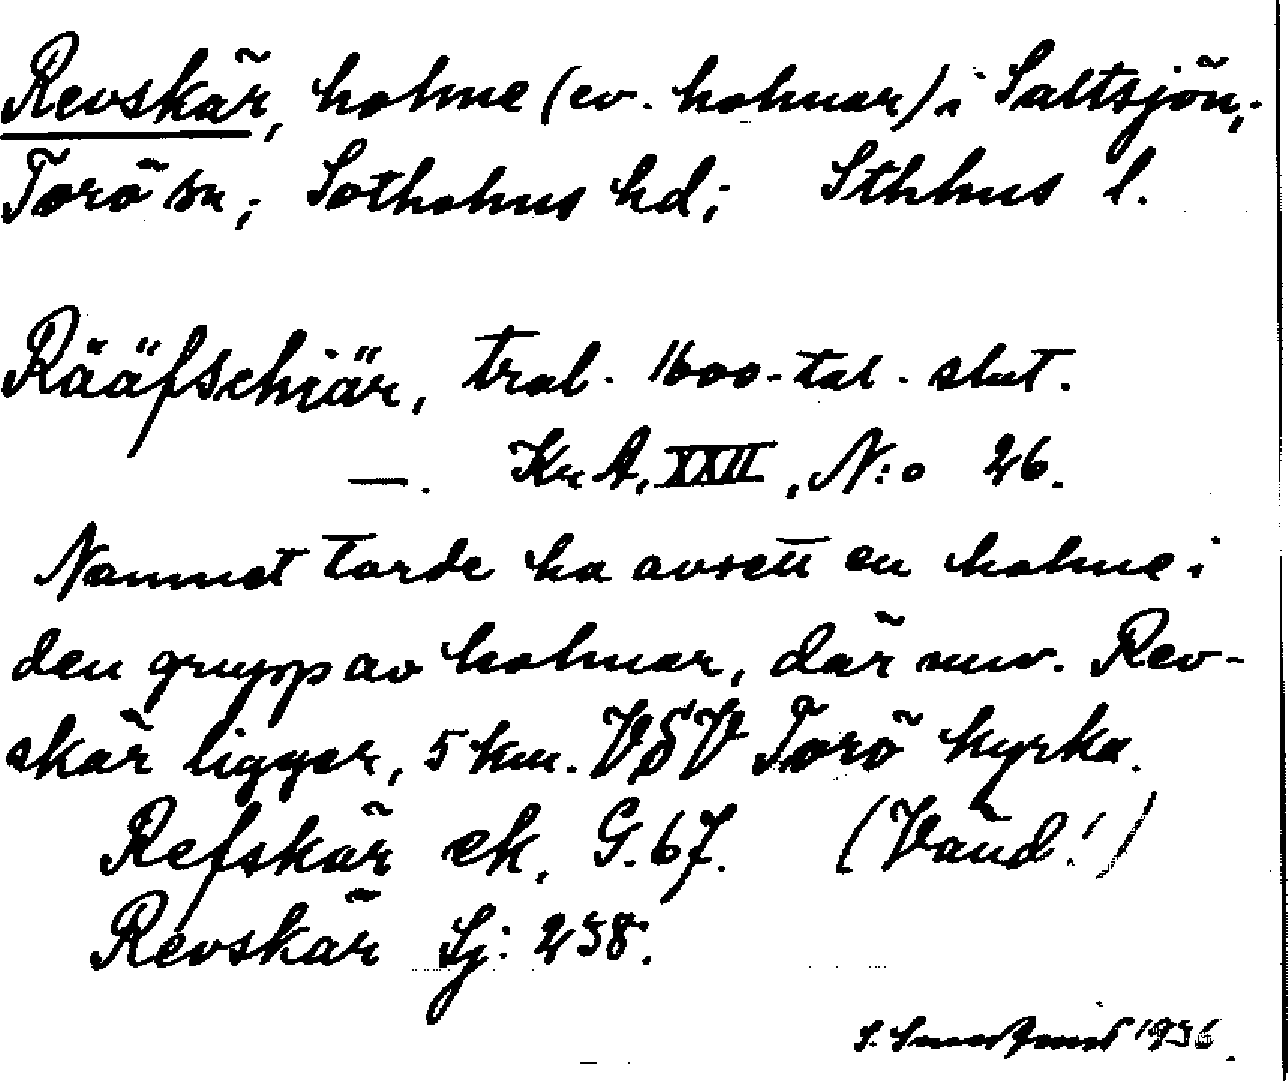 Revskär, holme (ev. holmar) i Saltsjön,
Torö sn; Sotholms hd; Sthlms l.
Rääfschiär, trol. 1600-tal. slut.
—. Kr A, XXII, N:o 26.
Namnet torde ha avsett en holme i
den grupp av holmar, där nuv. Rev-
skär ligger, 5 km. VSV Torö kyrka.
Refskär ek. G. 67. (Vänd!)
Revskär Sj: 238.
1936.